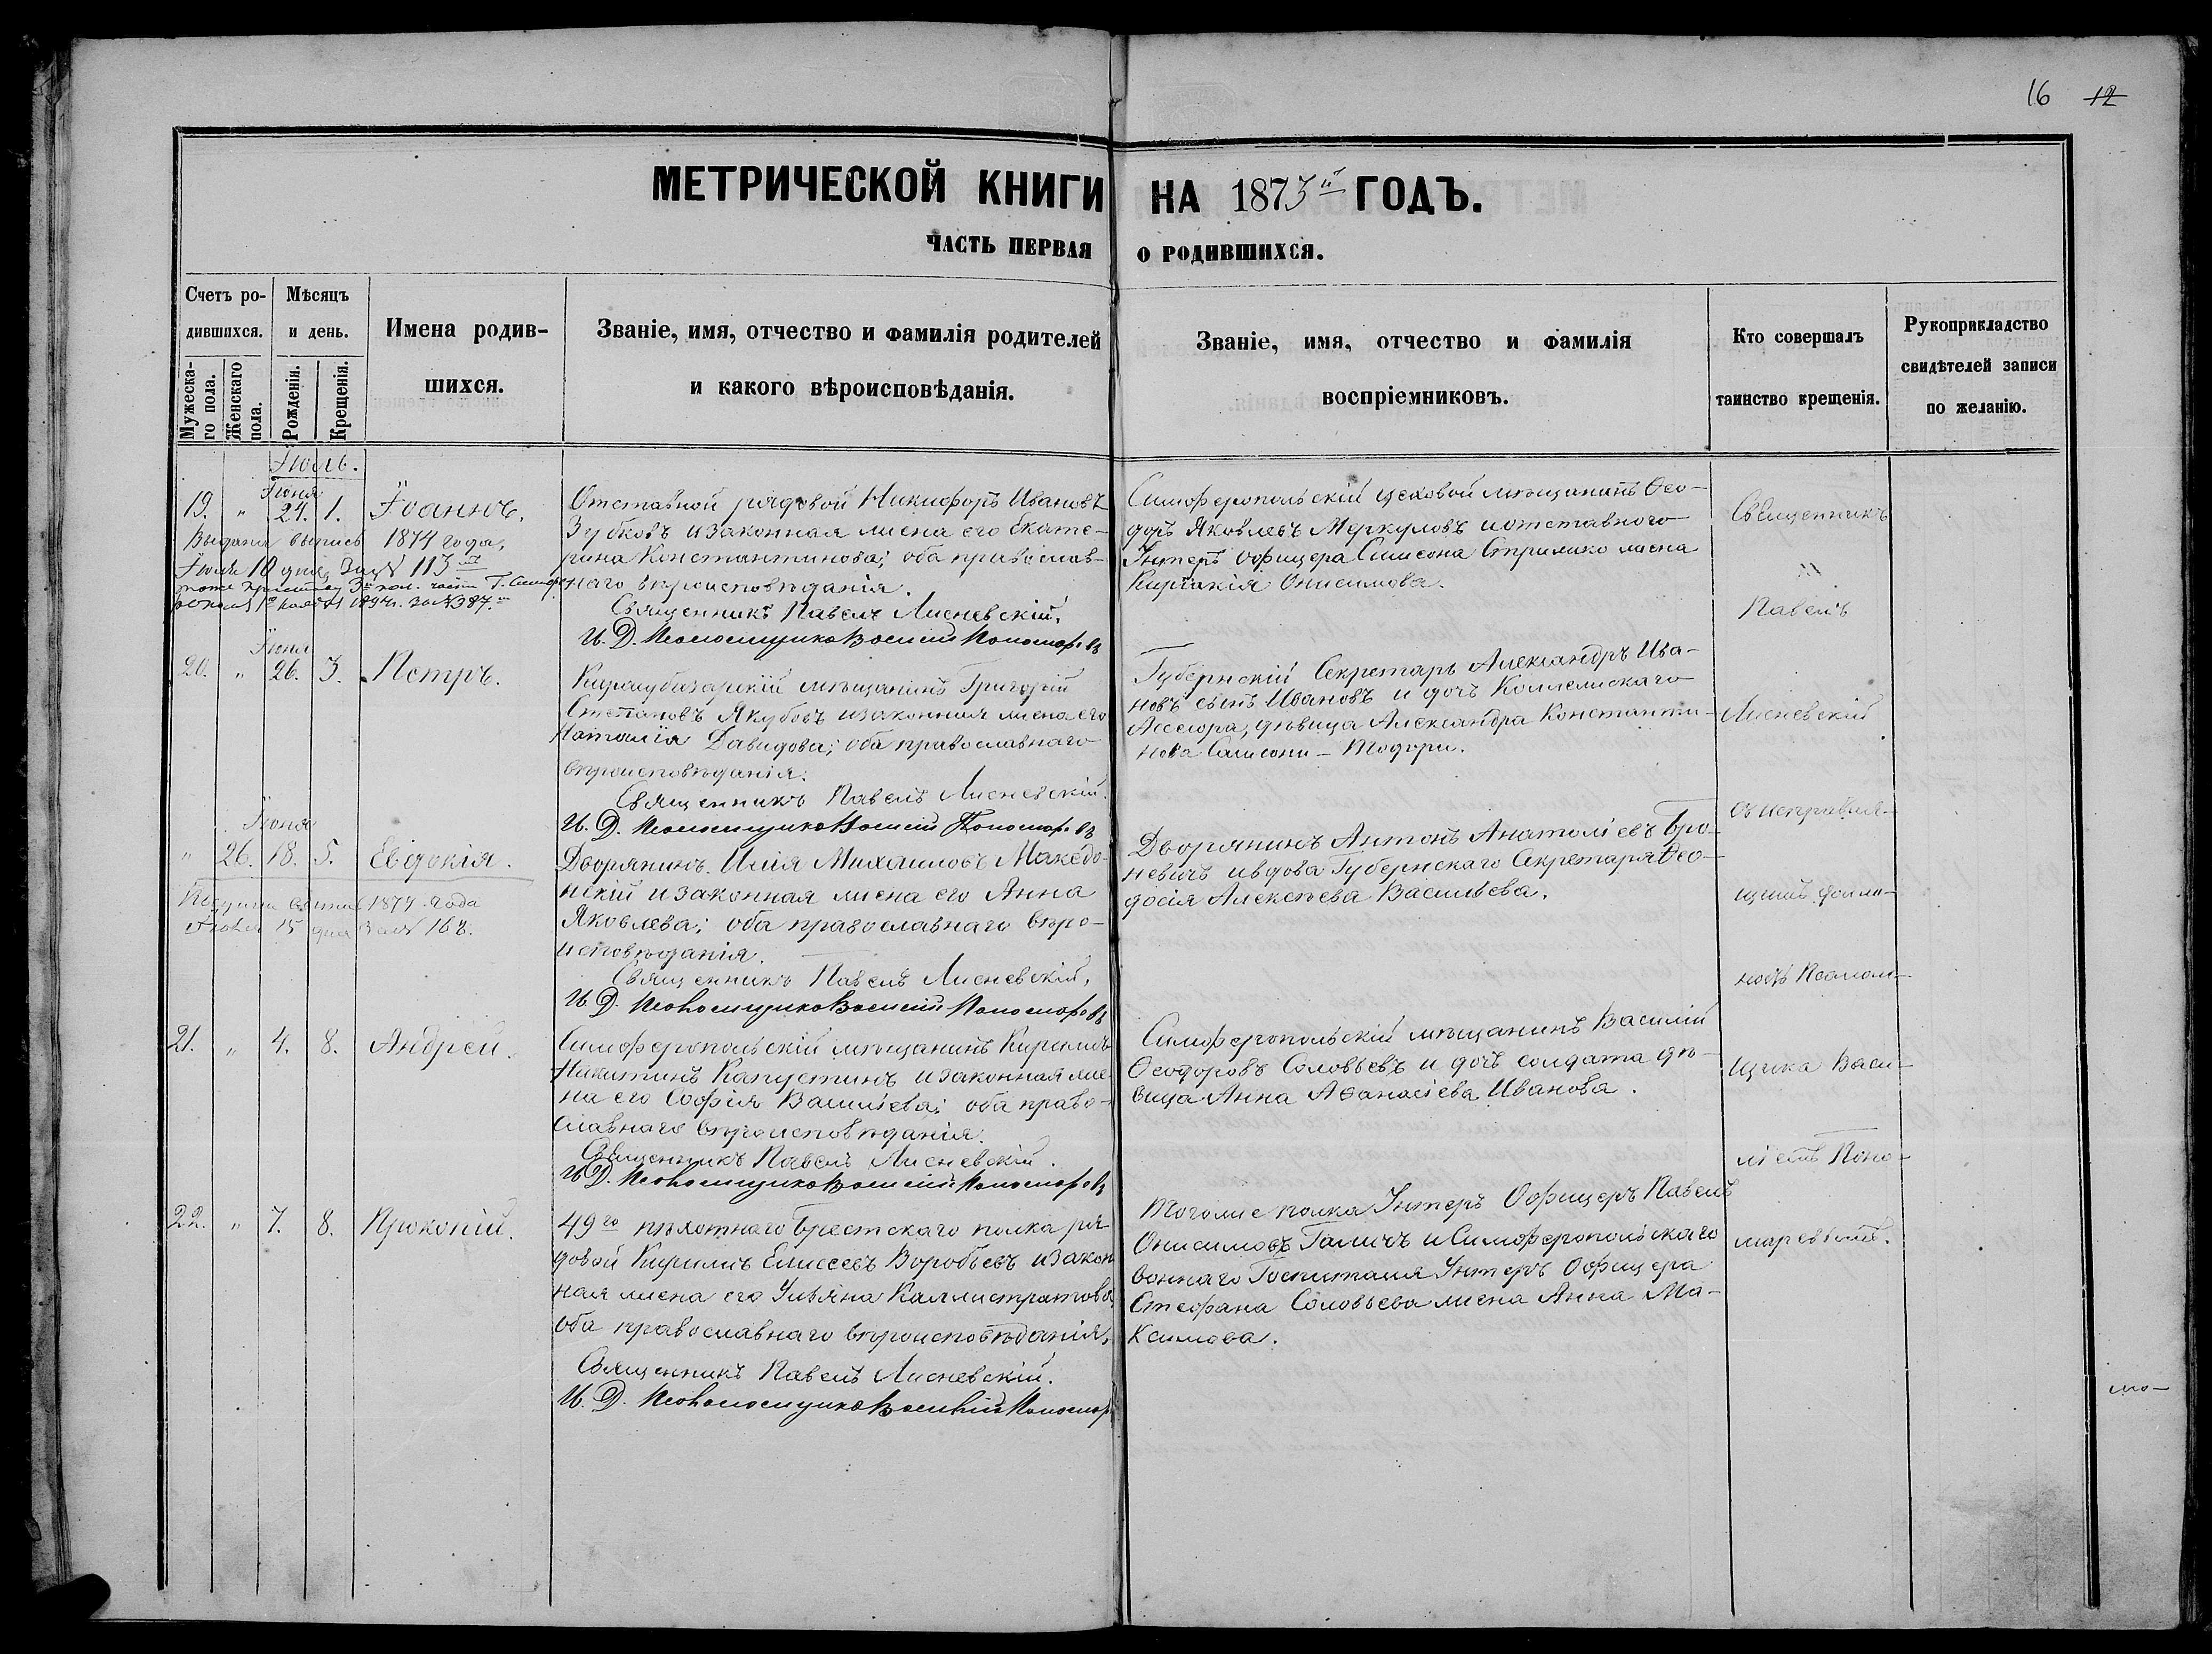 16 12
МЕТРИЧЕСКОЙ КНИГИ НА 1873й ГОДЪ.
ЧАСТЬ ПЕРВАЯ О РОДИВШИХСЯ.
Счетъ ро-
дившихся.
Мужеска-
го пола.
Женскаго
пола.
Мѣсяцъ
и день.
Рожденія.
Крещенія.
Имена родив-
шихся.
Званіе, имя, отчество и фамилія родителей
и какого вѣроисповѣданія.
Званіе, имя, отчество и фамилія
воспріемниковъ.
Кто совершалъ
таинство крещенія.
Рукоприкладство
свидѣтелей записи
по желанію.
Іюль.
Іюня
19. " 24. 1. Іоаннъ.
Выдана выпись 1874 года,
Іюля 10 дня, за № 113
1894г. за №387.
Отставной рядовой Никифоръ Ивановъ
Зубковъ и законная жена его Екате-
рина Константинова; оба православ-
наго вѣроисповѣданія.
Священникъ Павелъ Лисневскій.
И. Д. Псаломщика Василій Пономаревъ
Симферопольскій цеховой мѣщанинъ Ѳео-
доръ Яковлевъ Меркуловъ и отставного
Унтеръ Офицера Самсона Стрижико жена
Киріакія Онисимова.
Іюня
20. " 26. 3. Петръ.
Карасубазарскій мѣщанинъ Григорій
Степановъ Якубовъ и законная жена его
Наталія Давидова; оба православнаго
вѣроисповѣданія.
Священникъ Павелъ Лисневскій.
И. Д. Псаломщика Василій Пономаревъ
Губернскій Секретарь Александръ Ива-
новъ сынъ Ивановъ и дочь Коллежскаго
Ассесора, дѣвица Александра Константи-
нова Самсони - Тодори.
Іюня
" 26. 18. 5. Евдокія.
выпись 1874 года
15 дня за № 168.
Дворянинъ Илія Михаиловъ Македо-
нскій и законная жена его Анна
Яковлева; оба православнаго вѣро-
исповѣданія.
Священникъ Павелъ Лисневскій.
И. Д. Псаломщика Василій Пономаревъ
Дворянинъ Антонъ Анатоліевъ Бро-
невичъ и вдова Губернскаго Секретаря Ѳео-
досія Алексѣева Васильева.
21. " 4. 8. Андрей.
Симферопольскій мѣщанинъ Кириллъ
Никитинъ Капустинъ и законная же-
на его Софія Василіева; оба право-
славнаго вѣроисповѣданія.
Священникъ Павелъ Лисневскій.
И. Д. Псаломщика Василій Пономаревъ
Симферопольскій мѣщанинъ Василій
Ѳеодоровъ Соловьевъ и дочь солдата дѣ-
вица Анна Аѳанасіева Иванова.
22. " 7. 8. Прокопій.
49го пѣхотнаго Брестскаго полка ря-
довой Кириллъ Елисеевъ Воробьевъ и закон
ная жена его Ульяна Каллистратова
оба православнаго вѣроисповѣданія.
Священникъ Павелъ Лисневскій.
И. Д. Псаломщика Василій Пономар
Тогоже полка Унтеръ Офицеръ Павелъ
Онисимовъ Галичъ и Симферопольскаго
военнаго Госпиталя Унтеръ Офицера
Стефана Соловьева жена Анна Ма-
ксимова.
Священникъ
Павелъ
Лисневскій
съ исправля-
ющимъ долж-
ность Псалом-
щика Васи-
ліемъ Поно-
маревымъ.
мо-